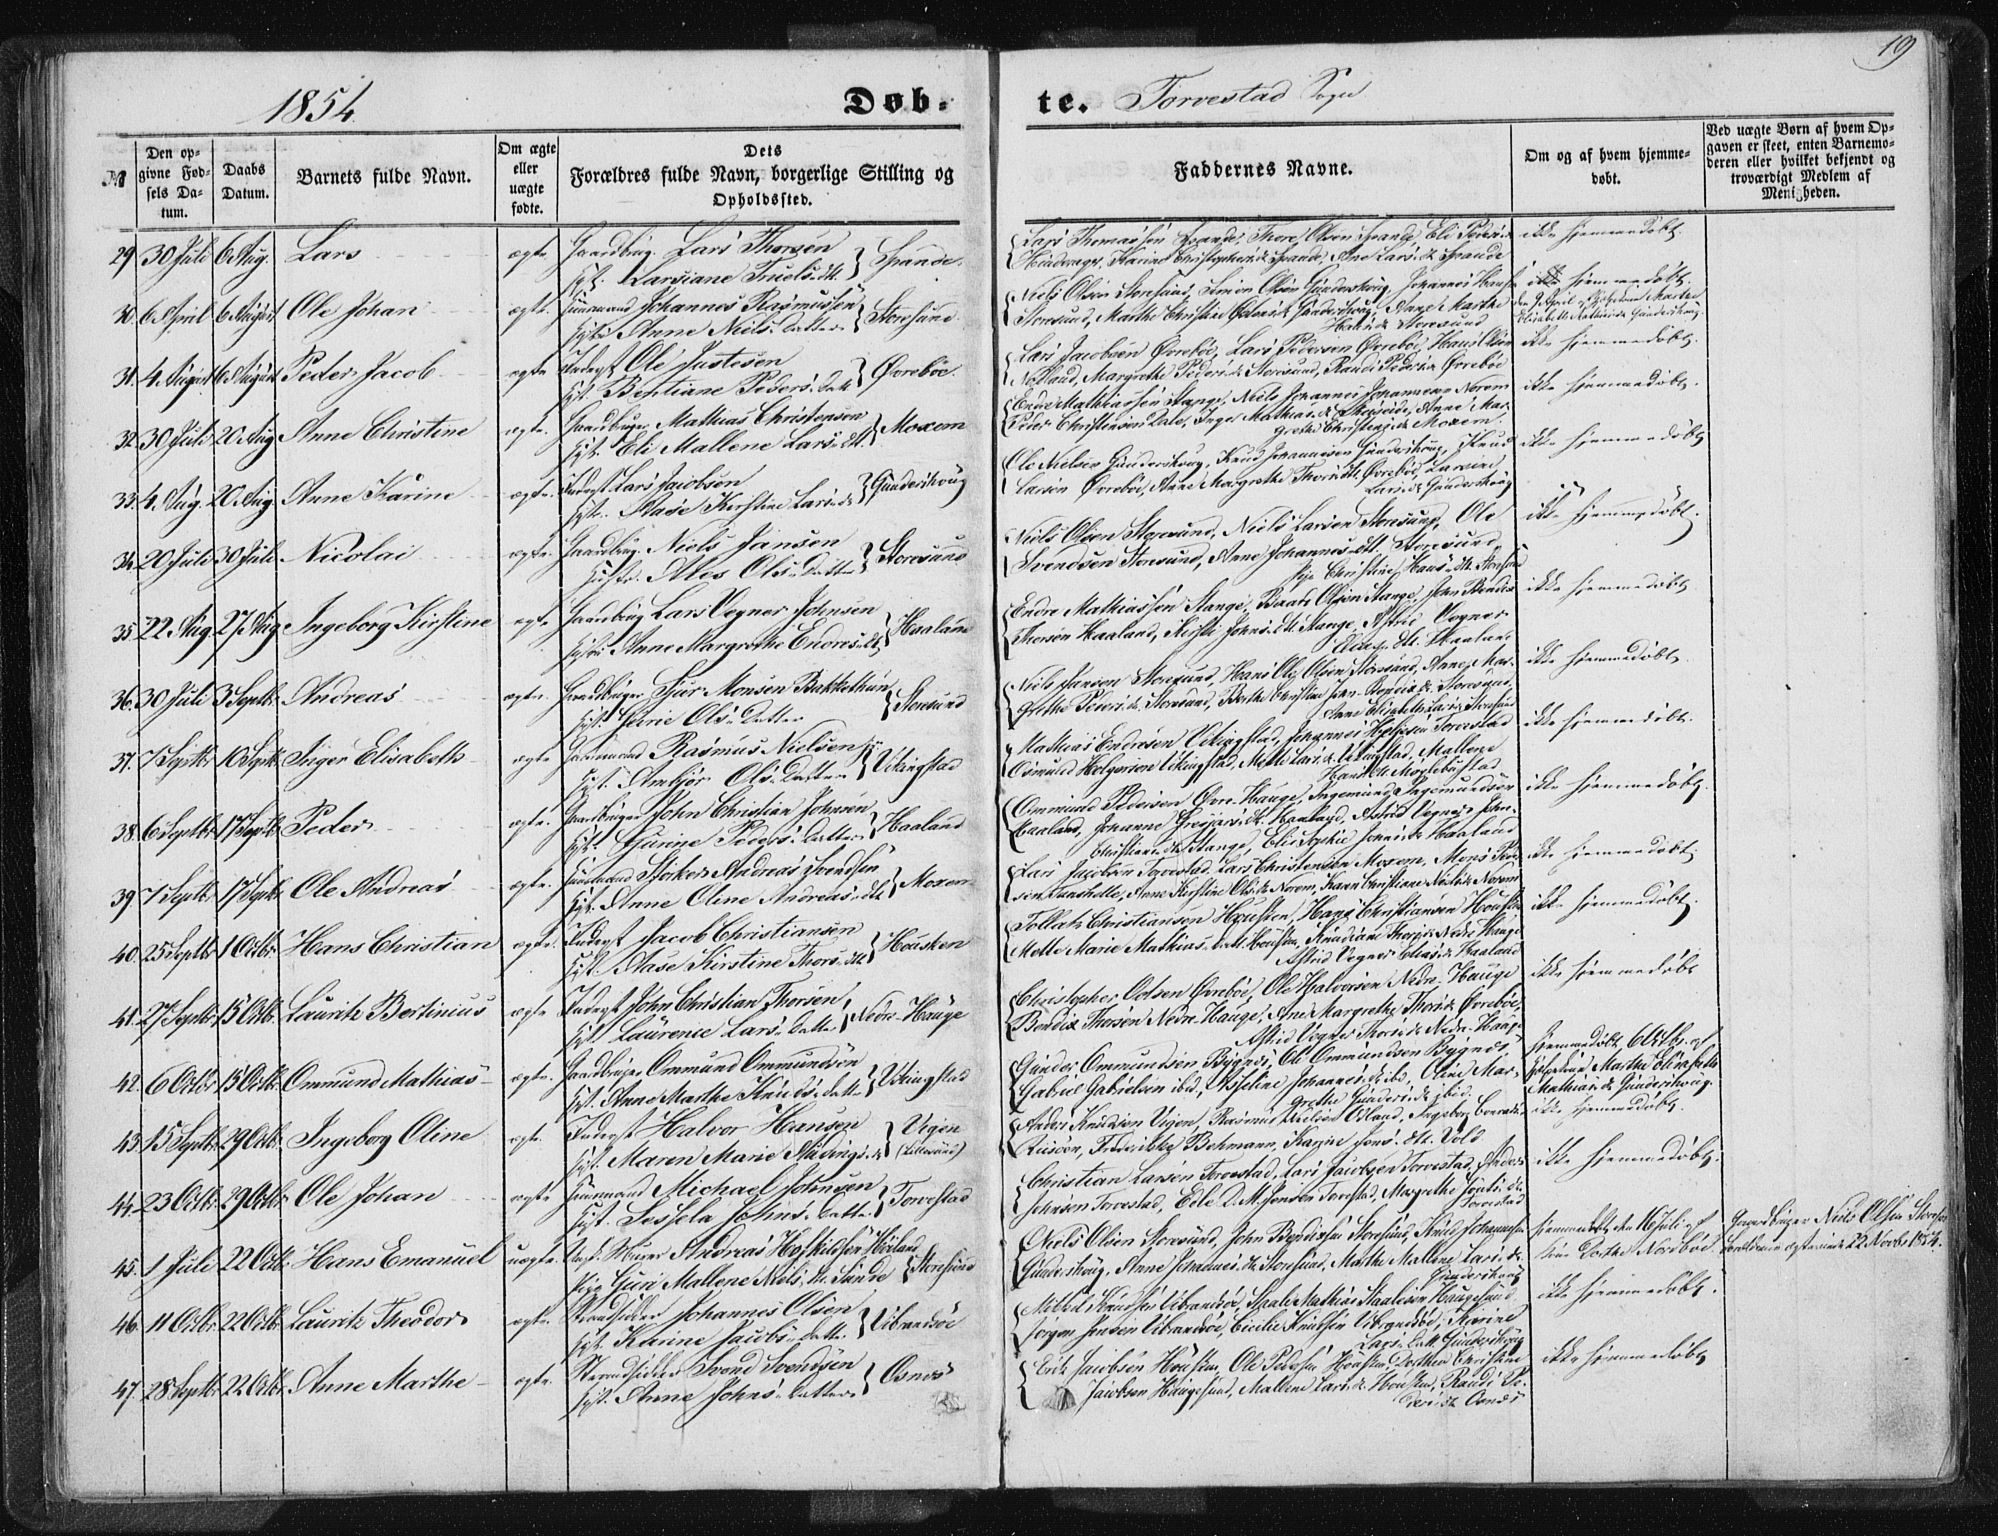 19
1854
Døb-
te. Torvestad Sogn
№
Den op-
givne Fød-
sels Da-
tum.
Daabs
Datum.
Barnets fulde Navn.
Om ægte
eller
uægte
fødte.
Dets
Forældres fulde Navn, borgerlige Stilling og
Opholdssted.
Faddernes Navne.
Om og af hvem hjemme-
døbt.
Ved uægte Børn af hvem Op-
gaven er skeet, enten Barnemo-
deren eller hvilket bekjendt og
troværdigt Medlem af
Menigheden.
29 30 Juli 6 Aug. Lars ægte Gaardbrug. Lars Thorsen
Hust. Larsiane Truels.dtt. Spande.
Lars Thomassen Spande, Thore Olsen Spande, Eli Peders.d.
Karine Christophers.d. Spande, Ane Lars.d. Spande
ikke hjemmedøbt.
30. 6 April 6 August Ole Johan ægte Huusmand Johannes Rasmussen
Hustr. Anne Niels Datter Storesund
Niels Olsen Storesund, Simon Olsen Gunderskoug, Johannes Hans
Storesund, Marthe Christine Gunderskoug, Anne Marthe
Hans.d. Storesund
hjemmedøbt
31 4. August 6 August Peder Jacob ægte Inderst Ole Justesen
Hst. Bentiane Peders. Datt Øvrebøe.
Lars Jacobsen Øvrebøe, Lars Pedersen Øvrebøe, Hans Olsen
Nolland, Margrethe Peders.d. Storesund, Randi Peders.d. Øvrebøe
ikke hjemmedøbt.
32 30 Juli 20 Aug Anne Christine ægte. Gaardbruger Mathias Christensen
Hst. Eli Mallene Lars.dtt. Moxem
Endre Mathiassen Stange, Niels Johannes Johannesen Norem
Peder Christensen Dale, Inger Mathias.d. Anne Mar-
grethe Christens.d. Moxem.
ikke hjemmedøbt.
33. 4. Aug. 20 Aug. Anne Karine ægte. Inderst Lars Jacobsen
Hst. Aase Kirstine Lars.d. Gunderskoug
Ole Nielsen Gunderskoug, Knud Johannesen Gunderskoug, Knud
Larsen Øvrebøe, Anne Margrethe Thors.dtt. Øvrebøe, Larsine
Lars.d. Gunderskoug
ikke hjemmedøbt
34 20 Juli 30 Juli Nicolai ægte. Gaardbrug. Niels Jansen
Hustr. Ales Ols. Datter Storesund
Niels Olsen Storesund, Niels Larsen Storesund, Ole
Svendsen Storesund, Anne Johannes.dtt. Storesund,
Pige Christine Hans.dtt. Storesund
ikke hjemmedøbt.
35 22 Aug. 27 Aug. Ingeborg Kirstine ægte Gaardbrug Lars Vogner Johnsen
Hustr. Anne Margrethe Endres.dt. Haaland
Endre Mathiassen Stange, Baard Olsen Stange, John Bendix
Thorsen Haaland, Kirsti Johns.dtt. Stange, Astrid Vogner
Elias.dtt. Haaland
ikke hjemmedøbt
36. 30 Juli 3 Septbr. Andreas ægte. Gaardbruger Sjur Monsen Bakkethun
Hst. Guri Ols. Datter Storesund
Niels Jansen Storesund, Hans Olai Olsen Storesund, Anne Mar-
grethe Peders.d. Storesund, Berthe Christine John Bendix.d. Storesund,
Anne Elisabeth Lars.d. Storesund
ikke hjemmedøbt.
37. 7 Septbr 10 Septbr. Inger Elisabeth ægte Huusmand Rasmus Nielsen
Hst. Ambjør Ols. Datter Vikingstad
Mathias Endresen Vikingstad, Johannes Helgesen Torvestad
Osmund Holgersen Vikingstad, Mette Lars.d. Vikingstad, Mallene
Hans.dtt. Møglebustad
ikke hjemmedøbt.
38. 6 Septbr 17 Septbr Peder ægte. Gaardbruger John Christian Johnsen
Hst. Gurine Peders. Datter Haaland
Ommund Pedersen Øvre Hauge, Ingemund Ingemundsen
Haaland, Johanne Haaland, Astrid Vogner
Christians.d. Stange, Elis Sophie Jones.d. Haaland
ikke hjemmedøbt.
39 7 Septbr 17 Septbr. Ole Andreas ægte. Huusmand Styrker Andreas Svendsen
Hst. Anne Oline Andreas.dt. Moxem
Lars Jacobsen Torvestad, Lars Christensen Moxem, Mons Peder-
sen Anne Kirstine Ols.d. Norem, Karen Christiane Niels.d. Norem
ikke hjemmedøbt.
40. 25 Septbr 1 Octbr. Hans Christian ægte. Inderst Jacob Christiansen
Hst. Aase Kirstine Thors.dtt. Housken
Tollak Christiansen Housken, Hans Christiansen Housken
Mette Marie Mathias. Datt. Housken, Knudiane Thors.d. Nedre Hauge
Astrid Vogner Elias.d. Haaland
ikke hjemmedøbt.
41. 27 Septbr 15 Octb. Lauritz Bertinius ægte Inderst John Christian Thorsen
Hst. Laurence Lars. Datter Nedre-Hauge
Christopher Ootsen Øvrebøe, Ole Halvorsen Nedre-Hauge
Bendix Thorsen Nedre-Hauge, Ane Margrethe Thors.d. Øvrebøe,
Astrid Vogner Thors.d. Nedre-Hauge
ikke hjemmedøbt
42. 6 Octbr 15 Octbr. Ommund Mathias ægte. Gaardbruger Ommund Ommundsen
Hst. Anne Marthe Knuds. Datter Vikingstad
Gunder Ommundsen Bygnes, Ole Ommundsen Bygnes
Gabriel Gabrielsen ibd, Asseline Johannes.d. ibd, Oline Mar-
grethe Gunders.d. ibid.
hjemmedøbt 6 Octbr. af
Marthe Elisabeth
Mathias.d. Gunderskoug.
43. 15 Septbr. 29 Octbr. Ingeborg Oline ægte. Inderst Halvor Hansen
Hst. Maren Marie Vigen
Anders Knudsen Vigen, Rasmus Nielsen Ingeborg
Fredrikke Bohmann, Karine Jons.dtt. Vold
ikke hjemmedøbt.
44. 23 Octbr. 29 Octbr. Ole Johan ægte Huusmand Michael Johnsen
Hust. Sessela Johns. Datter Torvestad
Christian Larsen Torvestad, Lars Jacobsen Torvestad, Anders
Johnsen Torvestad, Edle D. M. Jensen Torvestad, Margrethe
Torvestad
ikke hjemmedøbt.
45. 1 Juli 22 Octbr. Hans Emanuel uægte Andreas Høskildsen Høiland
Pige Guri Mallene Niels.dtt. Sunde Storesund
Niels Olsen Storesund, John Bendixsen Storesund, Knud Johannesen
Gunderskoug, Anne Johannes.d. Storesund, Marthe Mallene Lars.d.
Gunderskoug
hjemmedøbt den 16 Juli af
Dorthe Nordbøe
Gaardbruger Niels Olsen Storesund
22 Novbr. 1854.
46. 11 Octbr 22 Octbr Lauritz Theodor ægte. Strandsidder Johannes Olsen
Hst. Karine Jacobs. Datter Vibrandsøe
Knudsen Vibrandsøe, Staale Mathias Staalesen Haugesund,
Jørgen Jensen Vibrandsøe, Cicilie Knudsen Vibrandsøe, Karine
Lars. Datt. Gunderskoug
ikke hjemmedøbt.
47. 28 Septbr. 22 Octbr. Anne Marthe ægte. Strandsidder Svend Svendsen
Hst. Anne Johns. Datter Osnæs
Erik Jacobsen Housken, Ole Pedersen Housken, Dorthea Christine
Jacobsen Haugesund, Mallene Lars.d. Housken, Randi Pe-
ders.dt. Osnæs
ikke hjemmedøbt